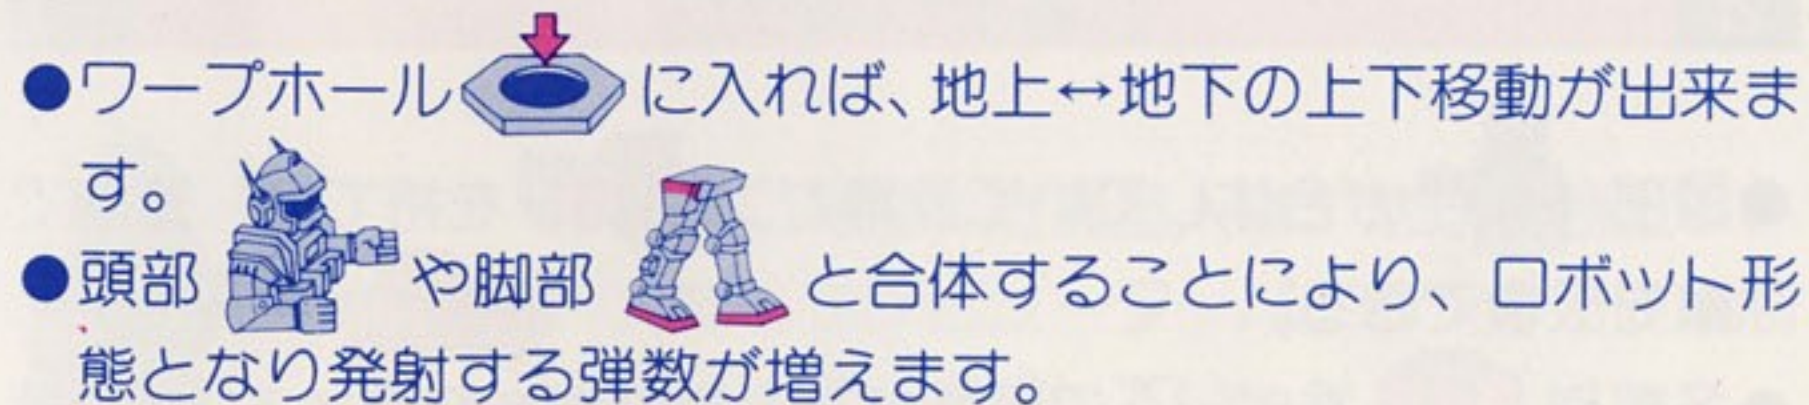 ●ワープホールに入れば、地上↔地下の上下移動が出来ま
す。
●頭部や脚部と合体することにより、ロボット形
態となり発射する弾数が増えます。